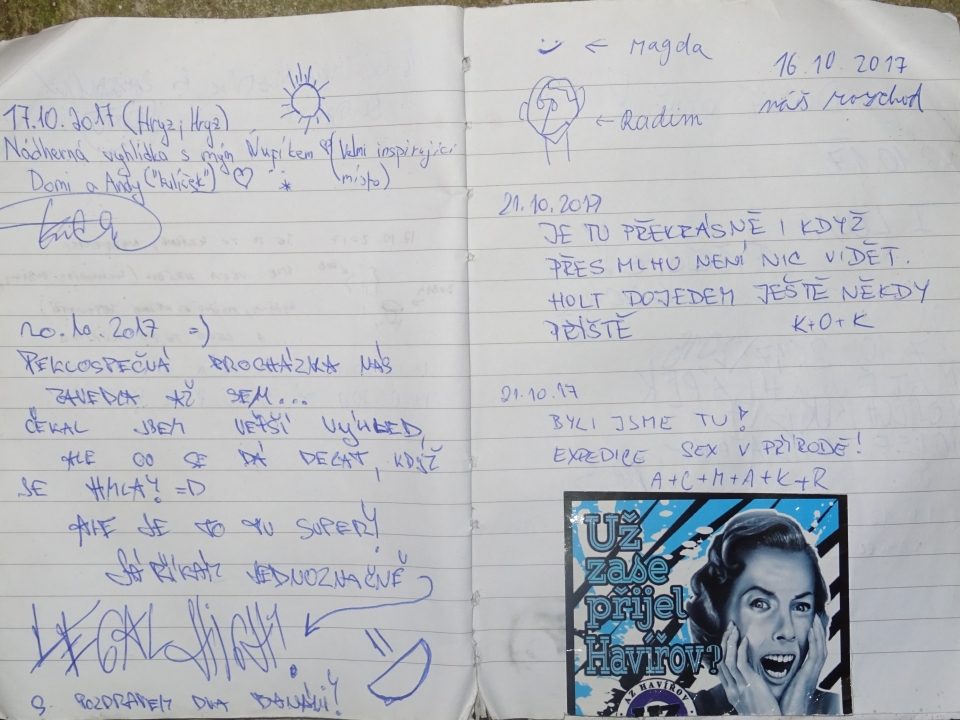 17.10.2017 (Hryz, Hryz)
Nádherná vyhlídka s mým Ňufíkem (Velmi inspirující
Domi a Andy ("Kulíšek") místo)
20.10.2017 =)
PEKLOSPEČNÁ PROCHÁZKA NÁS
ZAVEDLA AŽ SEM...
ČEKAL JSEM VĚTŠÍ VÝHLED,
ALE CO SE DÁ DĚLAT, KDYŽ
JE MHLA? =D
ALE JE TO TU SUPER!
JÁ ŘÍKÁM JEDNOZNAČNĚ
LEGAL HIGH!
S POZDRAVEM DVA BANÁNI!
← Magda
16.10.2017
náš rozchod
← Radim
21.10.2017
JE TU PŘEKRÁSNĚ I KDYŽ
PŘES MLHU NENÍ NIC VIDĚT.
HOLT DOJEDEM JEŠTĚ NĚKDY
PŘÍŠTĚ K+O+K
21.10.17
BYLI JSME TU!
EXPEDICE SEX V PŘÍRODĚ!
A+C+M+A+K+R
Už
zase
přijel
Havířov?
AZ HAVÍŘOV